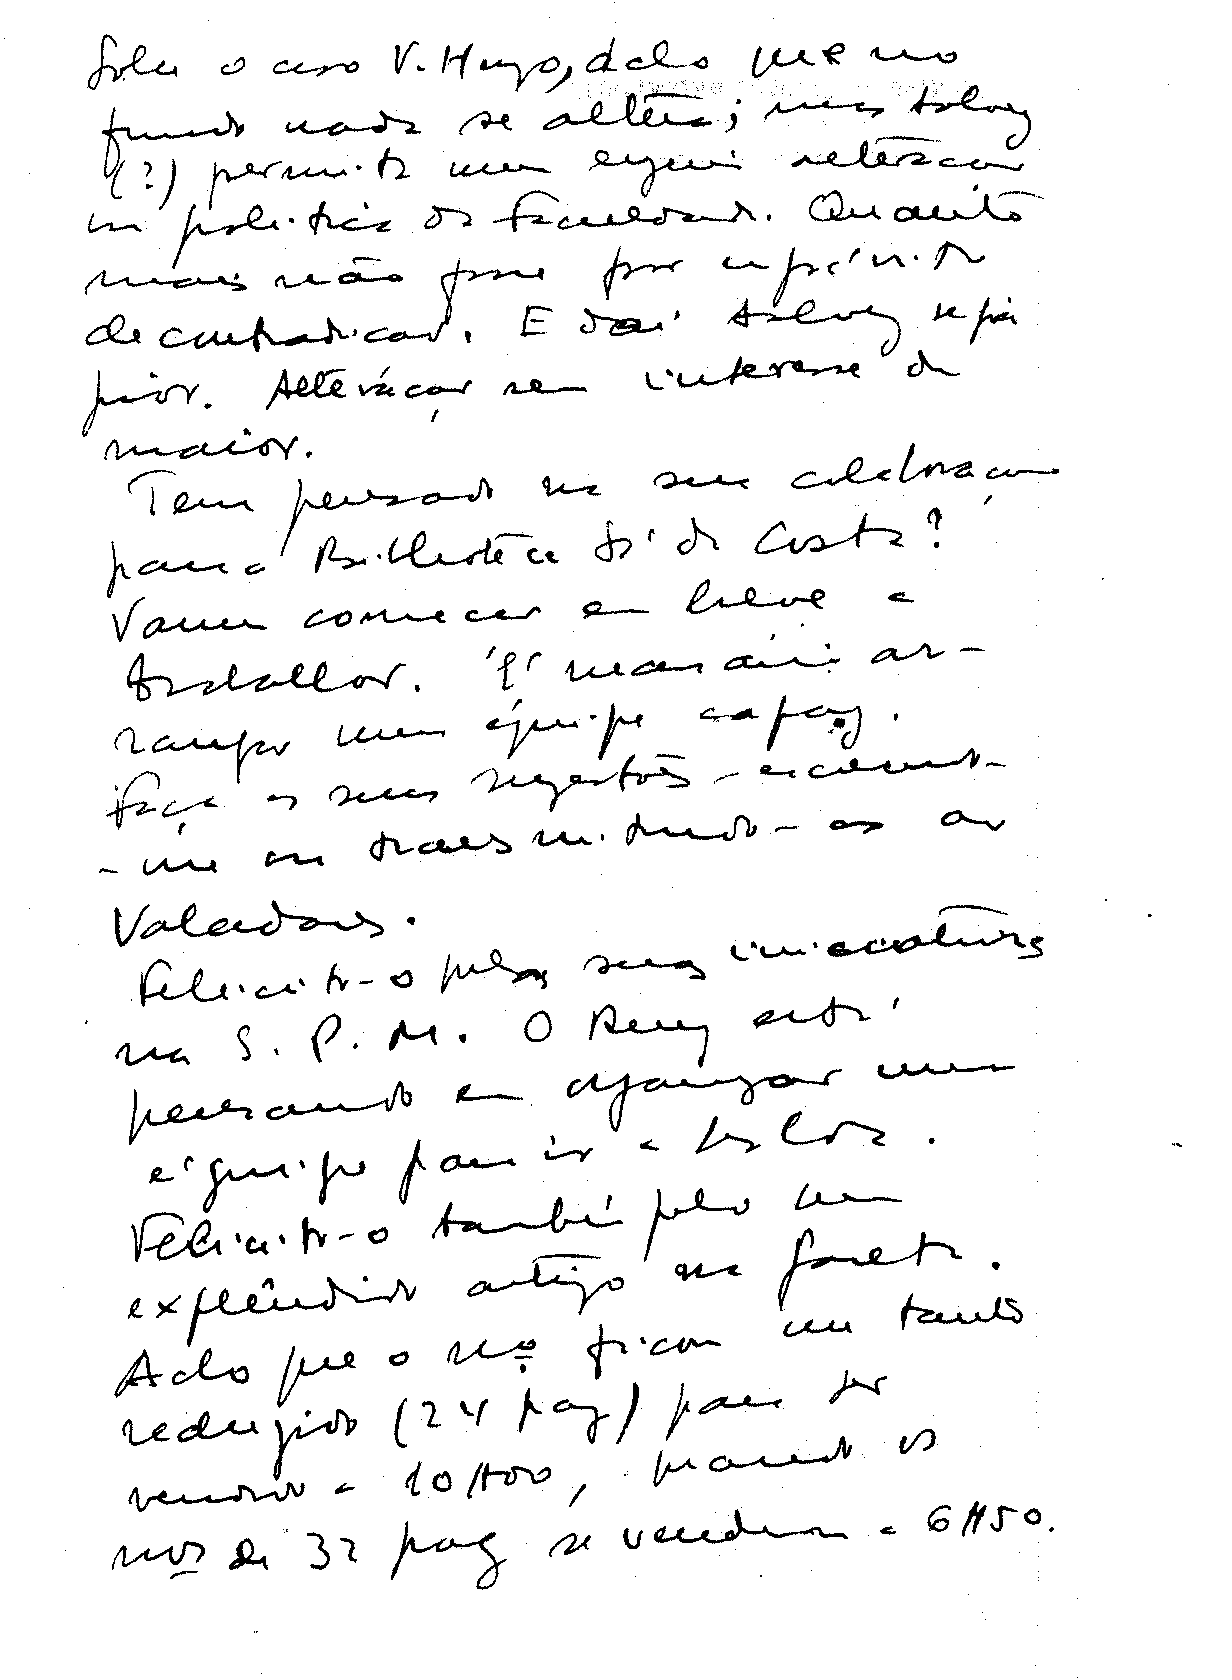 Sobre o caso V. Hugo, acho que no
fundo nada se altera; mas talvez
(?) permita uma alteração
na política da Faculdade. Quanto
mais não fosse por espírito
de contradição. E daí talvez seja
pior. Alteração sem interesse de
maior.
Tem pensado na sua colaboração
para a Biblioteca Sá da Costa?
Vamos começar em breve a
trabalhar. É necessário ar-
ranjar uma équipe capaz.
Faça as suas sugestões - escrevendo-
-me ou transmitindo-as ao
Valadares.
Felicito-o pelas suas iniciativas
na S. P. M. O Ruy está
pensando em arranjar uma
équipe para ir a Lisboa.
Felicito-o também pelo seu
explêndido artigo na Gazeta.
Acho que o nº ficou um tanto
reduzido (24 pag) para ser
vendido a 10$00, quando os
nos de 32 pag se vendiam a 6$50.